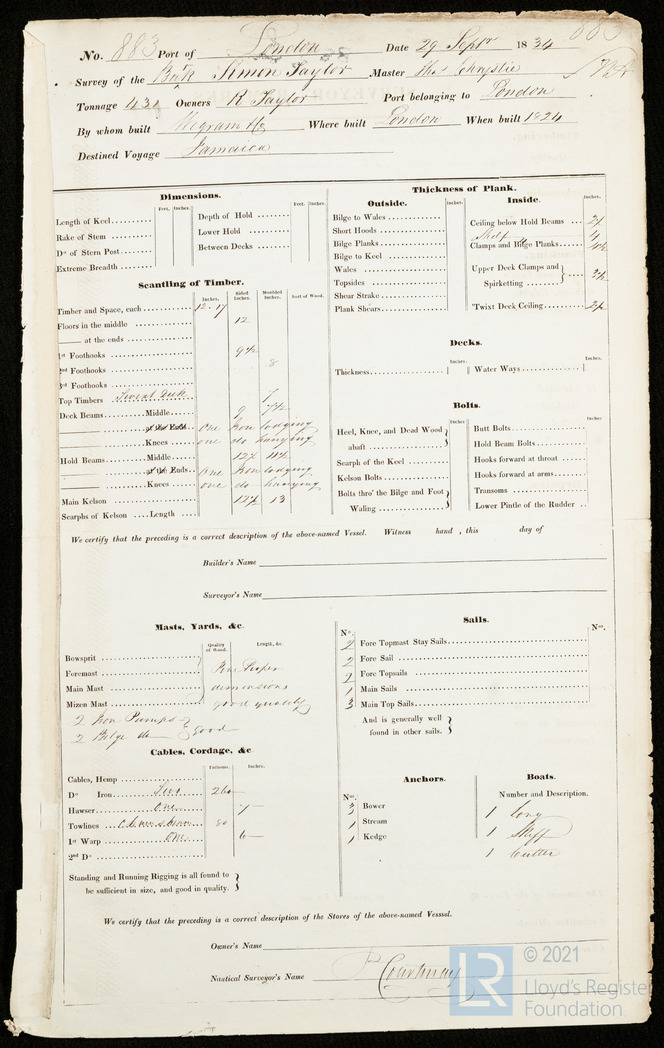 No. 883 Port of London Date 29 Septr 1834
Survey of the Bark Simon Taylor Master Thos Chrystie
Tonnage 431 Owners R Taylor Port belonging to London
By whom built Wigram &c Where built London When built 1824
Destined Voyage Jamaica
Dimensions.
Feet. Inches. Feet. Inches.
Length of Keel Depth of Hold
Rake of Stem Lower Hold
Do of Stern Post Between Decks
Extreme Breadth
Scantling of Timber.
Inches. Sided Inches. Moulded Inches. Sort of Wood.
Timber and Space, each 12.17
Floors in the middle 12
—— at the ends
1st Foothooks 9½
2nd Foothooks 8
3rd Foothooks
Top Timbers 7
Deck Beams Middle 9 7½
—— at the Ends One Iron lodging
—— Knees one do hanging
Hold Beams Middle 12½ 11½
—— at the Ends One Iron lodging
—— Knees one do hanging
Main Kelson 12½ 13
Scarphs of Kelson Length
Thickness of Plank.
Outside.
Bilge to Wales
Short Hoods
Bilge Planks
Bilge to Keel
Wales
Topsides
Shear Strake
Plank Shears
Inside.
Inches.
Ceiling below Hold Beams
Shelf 4
Clamps and Bilge Planks
Upper Deck Clamps and Spirketting
'Twixt Deck Ceiling
Decks.
Inches. Inches.
Thickness Water Ways
Bolts.
Inches. Inches
Heel, Knee, and Dead Wood abaft
Scarph of the Keel
Kelson Bolts
Bolts thro' the Bilge and Foot Waling
Butt Bolts
Hold Beam Bolts
Hooks forward at throat
Hooks forward at arms
Transoms
Lower Pintle of the Rudder
We certify that the preceding is a correct description of the above-named Vessel. Witness hand, this day of
Builder's Name
Surveyor's Name
Masts, Yards, &c.
Quality of Wood. Length, &c.
Bowsprit
Foremast
Main Mast dimensions
Mizen Mast good quality
2 Iron Pumps
2 Bilge do good
Cables, Cordage, &c
Fathoms. Inches.
Cables, Hemp
Do Iron Two 260
Hawser One 7
Towlines 80
1st Warp One 6
2nd Do
Standing and Running Rigging is all found to
be sufficient in size, and good in quality.
Sails.
No. No.
2 Fore Topmast Stay Sails
2 Fore Sail
2 Fore Topsails
1 Main Sails
3 Main Top Sails
And is generally well
found in other sails.
Anchors.
No.
3 Bower
1 Stream
1 Kedge
Boats.
Number and Description.
1 Long
1 Skiff
1 Cutter
We certify that the preceding is a correct description of the Stores of the above-named Vesssel.
Owner's Name
Nautical Surveyor's Name P Courtenay
LR © 2021
Lloyd's Register
Foundation